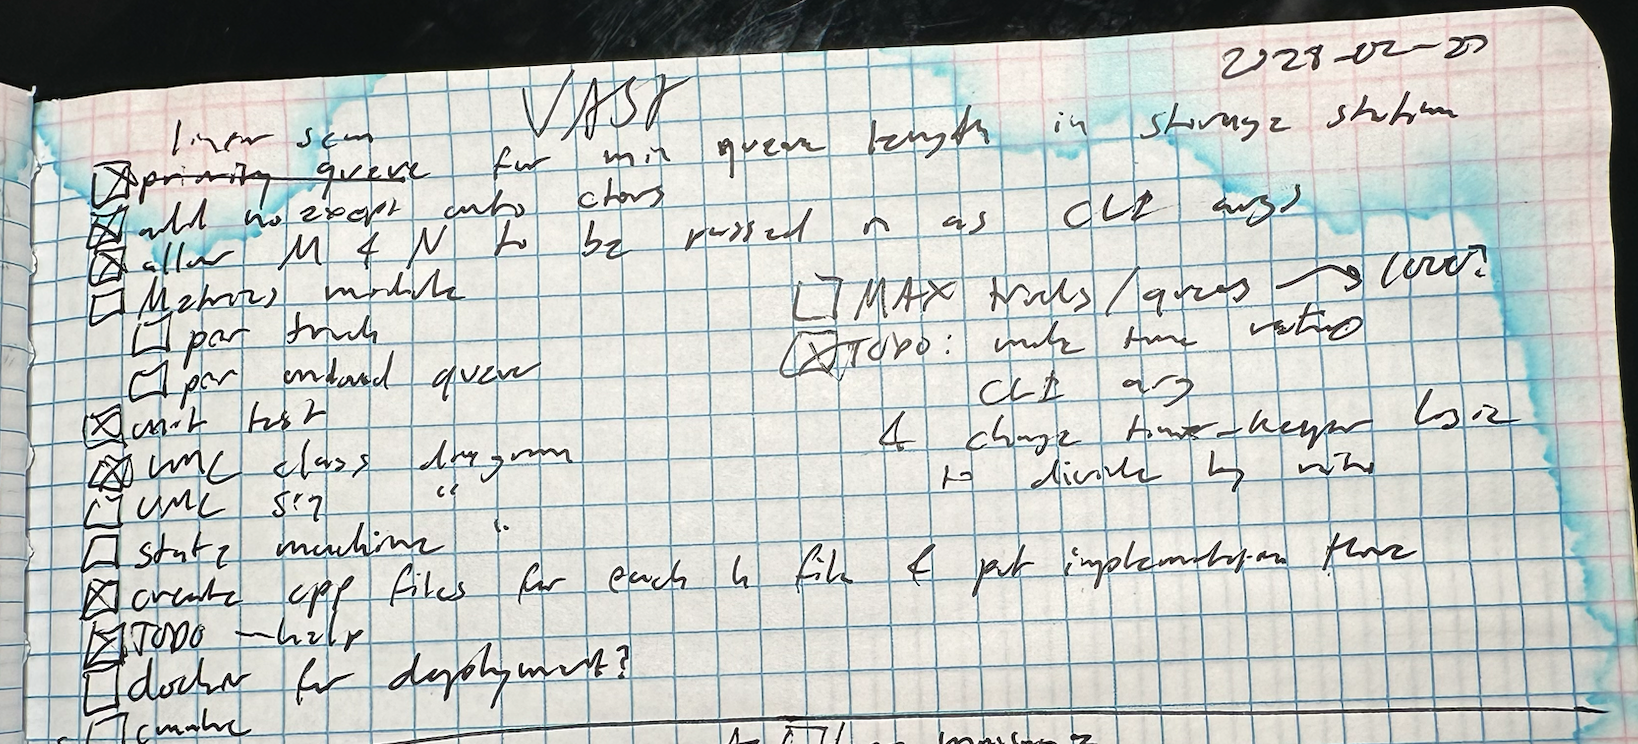 VAST
linear scan
priority queue for min queue length in storage station
add noexcept onto ctors
allow M & N to be passed in as CLI args
Metrics module
per truck
per unload queue
unit test
UML class diagram
UML seq "
state machine "
create cpp files for each h file & put implementation there
TODO --help
docker for deployment?
cmake
MAX trucks/queues → 1000?
TODO: make time ratio
CLI arg
& change time-keeper logic
to divide by ratio